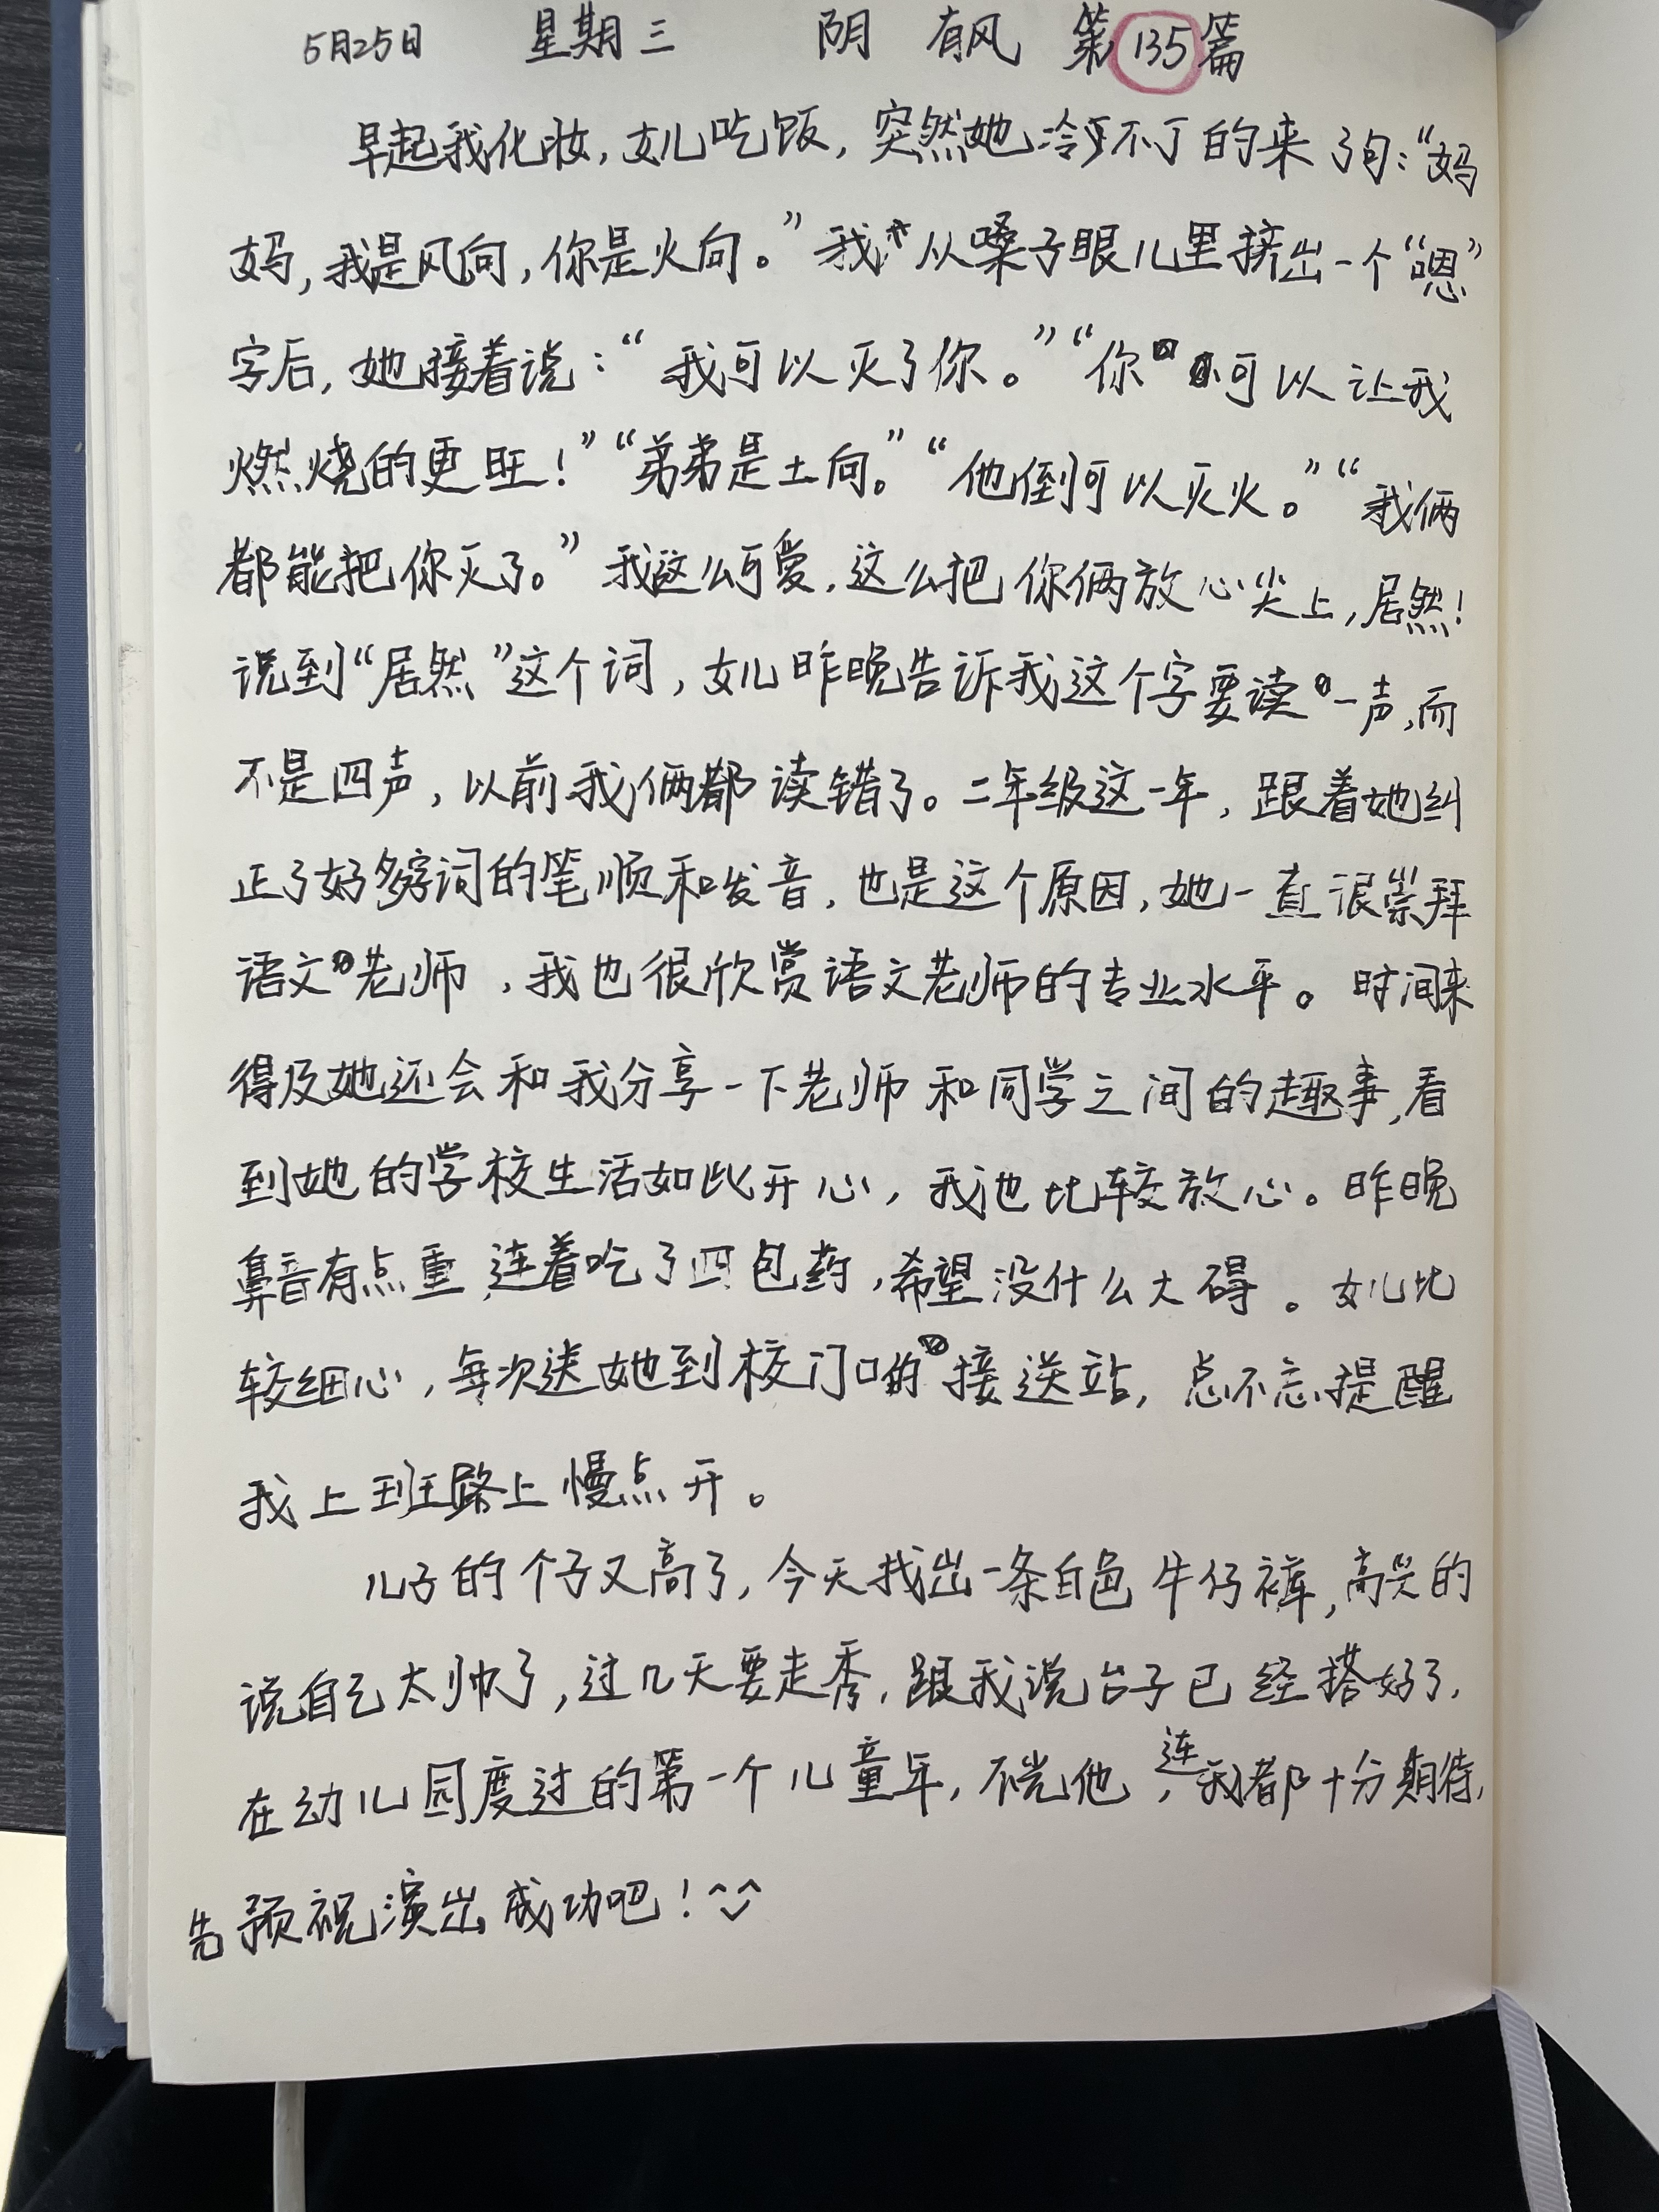 5月25日 星期三 阴 有风 第135篇
早起我化妆,女儿吃饭,突然她冷不丁的来了句:“妈
妈,我是风向,你是火向。”我从嗓子眼儿里挤出一个“嗯”
字后,她接着说:“我可以灭了你。”“你可以让我
燃烧的更旺!”“弟弟是土向。”“他倒可以灭火。”“我俩
都能把你灭了。”我这么可爱,这么把你俩放心尖上,居然!
说到“居然”这个词,女儿昨晚告诉我这个字要读一声,而
不是四声,以前我俩都读错了。二年级这一年,跟着她纠
正了好多字词的笔顺和发音,也是这个原因,她一直很崇拜
语文老师,我也很欣赏语文老师的专业水平。时间来
得及她还会和我分享一下老师和同学之间的趣事,看
到她的学校生活如此开心,我也比较放心。昨晚
鼻音有点重,连着吃了四包药,希望没什么大碍。女儿比
较细心,每次送她到校门口的接送站,总不忘提醒
我上班路上慢点开。
儿子的个子又高了,今天找出一条白色牛仔裤,高兴的
说自己太帅了,过几天要走秀,跟我说台子已经搭好了,
在幼儿园度过的第一个儿童年,不光他,连我都十分期待,
先预祝演出成功吧!^^